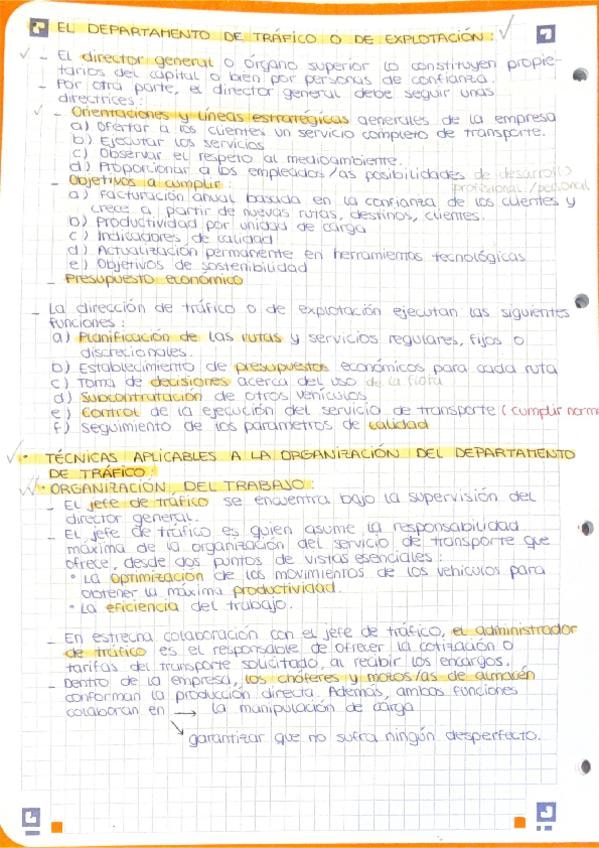 EL DEPARTAMENTO DE TRÁFICO O DE EXPLOTACIÓN:
- El director general o órgano superior lo constituyen propie-
tarios del capital o bien por personas de confianza.
- Por otra parte, el director general debe seguir unas
directrices:
- Orientaciones y líneas estratégicas generales de la empresa
a) Ofertar a los clientes un servicio completo de transporte.
b) Ejecutar los servicios
c) Observar el respeto al medioambiente.
d) Proporcionar a los empleados/as posibilidades de desarrollo
profesional/personal
- Objetivos a cumplir:
a) Facturación anual basada en la confianza de los clientes y
crece a partir de nuevas rutas, destinos, clientes.
b) Productividad por unidad de carga
c) Indicadores de calidad
d) Actualización permanente en herramientas tecnológicas
e) Objetivos de sostenibilidad
- Presupuesto económico
- La dirección de tráfico o de explotación ejecutan las siguientes
funciones:
a) Planificación de las rutas y servicios regulares, fijos o
discrecionales.
b) Establecimiento de presupuestos económicos para cada ruta
c) Toma de decisiones acerca del uso de la flota
d) Subcontratación de otros vehículos
e) Control de la ejecución del servicio de transporte (cumplir norm
f) Seguimiento de los parámetros de calidad
• TÉCNICAS APLICABLES A LA ORGANIZACIÓN DEL DEPARTAMENTO
DE TRÁFICO:
• ORGANIZACIÓN DEL TRABAJO:
- El jefe de tráfico se encuentra bajo la supervisión del
director general.
- El jefe de tráfico es quien asume la responsabilidad
máxima de la organización del servicio de transporte que
ofrece, desde dos puntos de vistas esenciales:
• La optimización de los movimientos de los vehículos para
obtener la máxima productividad.
• La eficiencia del trabajo.
- En estrecha colaboración con el jefe de tráfico, el administrador
de tráfico es el responsable de ofrecer la cotización o
tarifas del transporte solicitado, al recibir los encargos.
- Dentro de la empresa, los chóferes y mozos/as de almacén
conforman la producción directa. Además, ambas funciones
colaboran en → la manipulación de carga
↘ garantizar que no sufra ningún desperfecto.